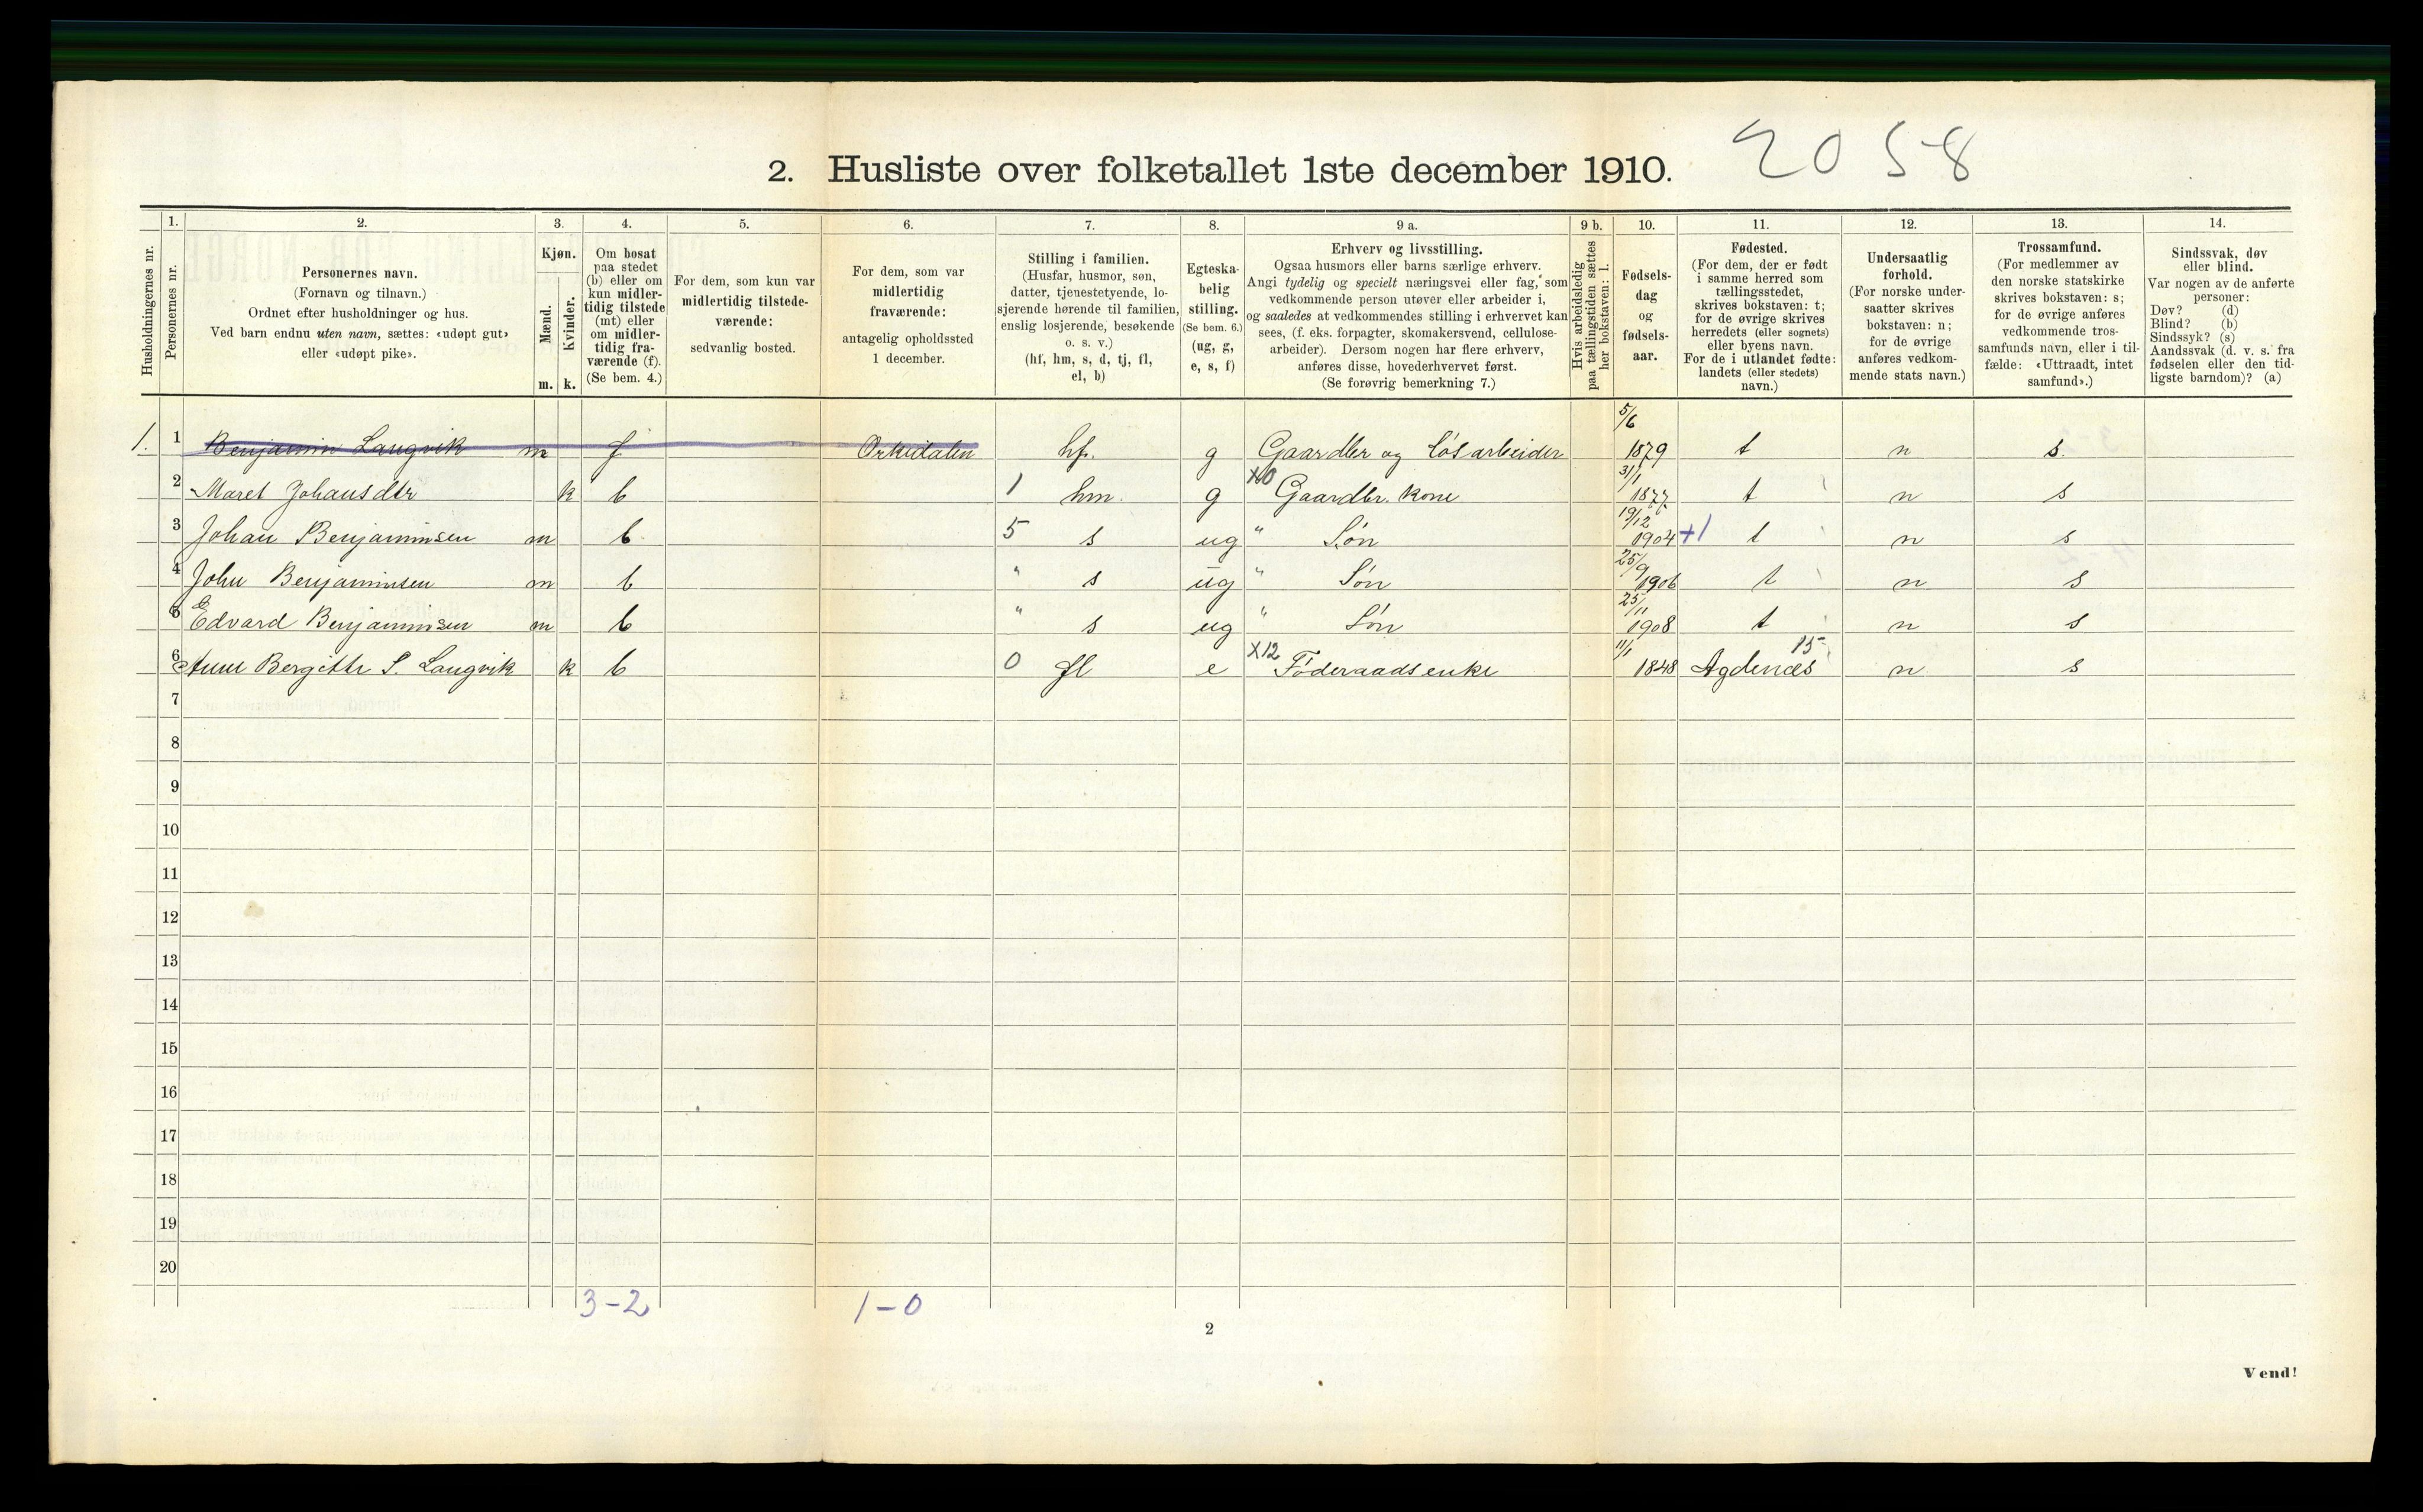 2. Husliste over folketallet 1ste december 1910. 2058
Husholdningernes nr.
1. Personernes nr.
2. Personernes navn. (Fornavn og tilnavn.) Ordnet efter husholdninger og hus. Ved barn endnu uten navn, sættes: «udøpt gut» eller «udøpt pike».
3. Kjøn. Mænd. m. Kvinder. k.
4. Om bosat paa stedet (b) eller om kun midlertidig tilstede (mt) eller om midlertidig fraværende (f). (Se bem. 4.)
5. For dem, som kun var midlertidig tilstedeværende: sedvanlig bosted.
6. For dem, som var midlertidig fraværende: antagelig opholdssted 1 december.
7. Stilling i familien. (Husfar, husmor, søn, datter, tjenestetyende, losjerende hørende til familien, enslig losjerende, besøkende o. s. v.) (hf, hm, s, d, tj, fl, el, b)
8. Egteskabelig stilling. (Se bem. 6.) (ug, g, e, s, f)
9 a. Erhverv og livsstilling. Ogsaa husmors eller barns særlige erhverv. Angi tydelig og specielt næringsvei eller fag, som vedkommende person utøver eller arbeider i, og saaledes at vedkommendes stilling i erhvervet kan sees, (f. eks. forpagter, skomakersvend, cellulosearbeider). Dersom nogen har flere erhverv, anføres disse, hovederhvervet først. (Se forøvrig bemerkning 7.)
9 b. Hvis arbeidsledig paa tællingstiden sættes her bokstaven: l.
10. Fødselsdag og fødselsaar.
11. Fødested. (For dem, der er født i samme herred som tællingsstedet, skrives bokstaven: t; for de øvrige skrives herredets (eller sognets) eller byens navn. For de i utlandet fødte: landets (eller stedets) navn.)
12. Undersaatlig forhold. (For norske undersaatter skrives bokstaven: n; for de øvrige anføres vedkommende stats navn.)
13. Trossamfund. (For medlemmer av den norske statskirke skrives bokstaven: s; for de øvrige anføres vedkommende trossamfunds navn, eller i tilfælde: «Uttraadt, intet samfund».)
14. Sindssvak, døv eller blind. Var nogen av de anførte personer: Døv? (d) Blind? (b) Sindssyk? (s) Aandssvak (d. v. s. fra fødselen eller den tidligste barndom)? (a)
1. 1 Benjamin Langvik m f Orkedalen hf. g Gaardbr og Løsarbeider 5/6 1879 t n s.
2 Maret Johansdtr k b 1 hm. g X0 Gaardbr. kone 31/1 1877 t n s
3 Johan Benjaminsen m b 5 s ug " Søn 19/12 1904 +1 t n s
4 John Benjaminsen m b " s ug " Søn 25/9 1906 t n s
5 Edvard Benjaminsen m b " s ug " Søn 25/11 1908 t n s
6 Anne Bergitte S. Langvik k b 0 fl e X12 Føderaadsenke 11/1 1848 Agdenæs 15 n s
7
8
9
10
11
12
13
14
15
16
17
18
19
20
3-2 1-0
2
Vend!